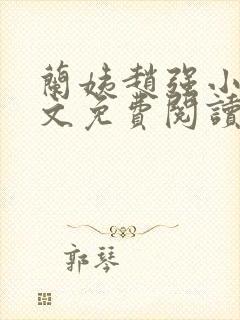 蘭姨趙強小
文免費閱讀
郭琴